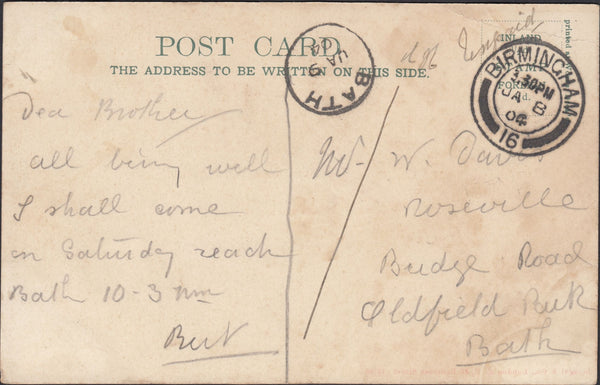 POST CARD.
THE ADDRESS TO BE WRITTEN ON THIS SIDE.
INLAND
BATH
JA 9
04
BIRMINGHAM
3.30PM
JA 8
04
16
Dea Brother
all being well
I shall come
on Saturday reach
Bath 10-3
Bert
Mr. W. Davis
Roseville
Bridge Road
Oldfield Park
Bath